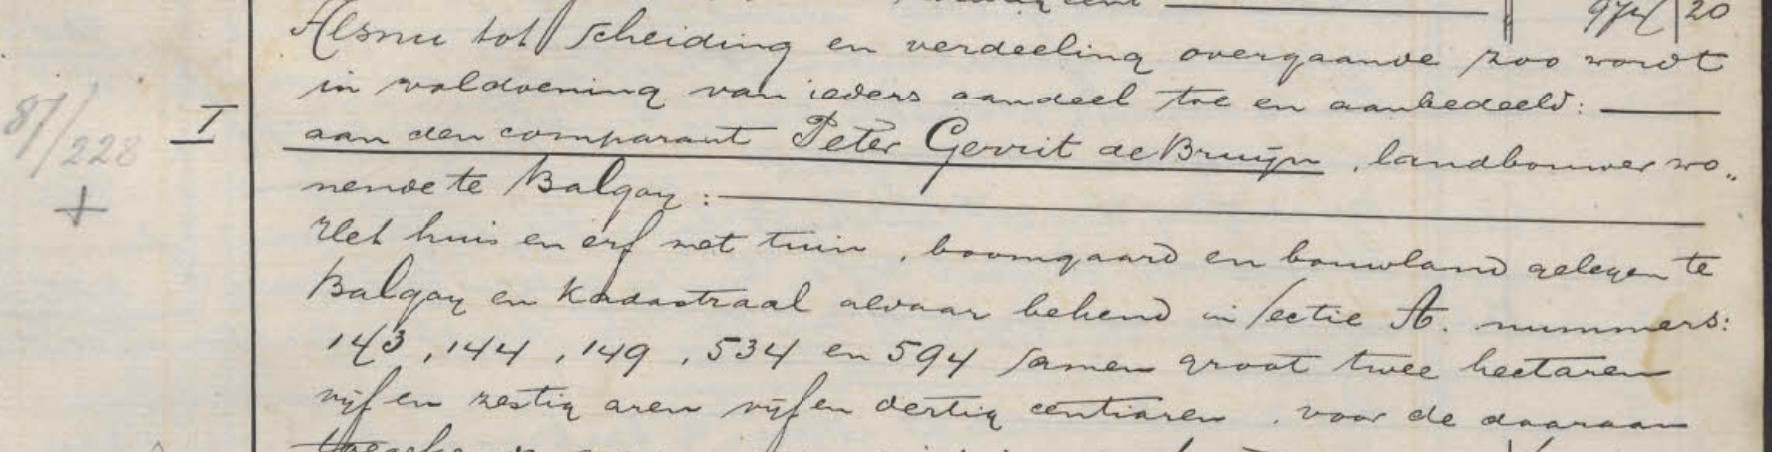 974 | 20
Alsnu tot scheiding en verdeeling overgaande zoo wordt
in voldoening van ieders aandeel toe en aanbedeeld:
87/228 + I aan den comparant Peter Gerrit de Bruijn, landbouwer wo„
nende te Balgoy:
Het huis en erf met tuin, boomgaard en bouwland gelegen te
Balgoy en kadastraal aldaar bekend in sectie A. nummers:
143, 144, 149, 534 en 594 samen groot twee hectaren
vijf en zestig aren vijf en dertig centiaren, voor de daaraan